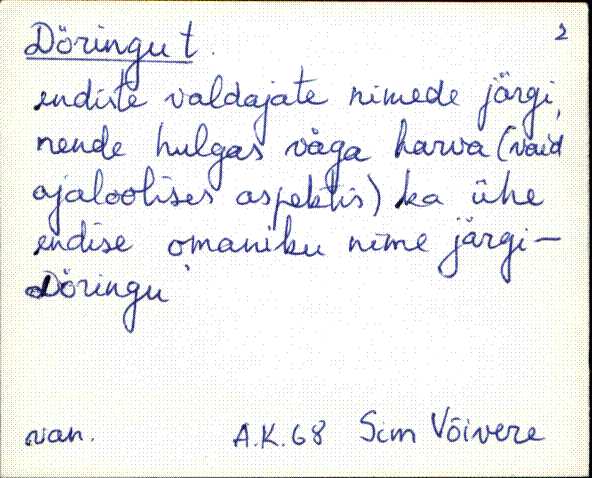 Döringu t. 2
endiste valdajate nimede järgi,
nende hulgas väga harva (vaid
ajaloolises aspektis) ka ühe
endise omaniku nime järgi —
Döringu
van. A.K.68 Sim Võivere